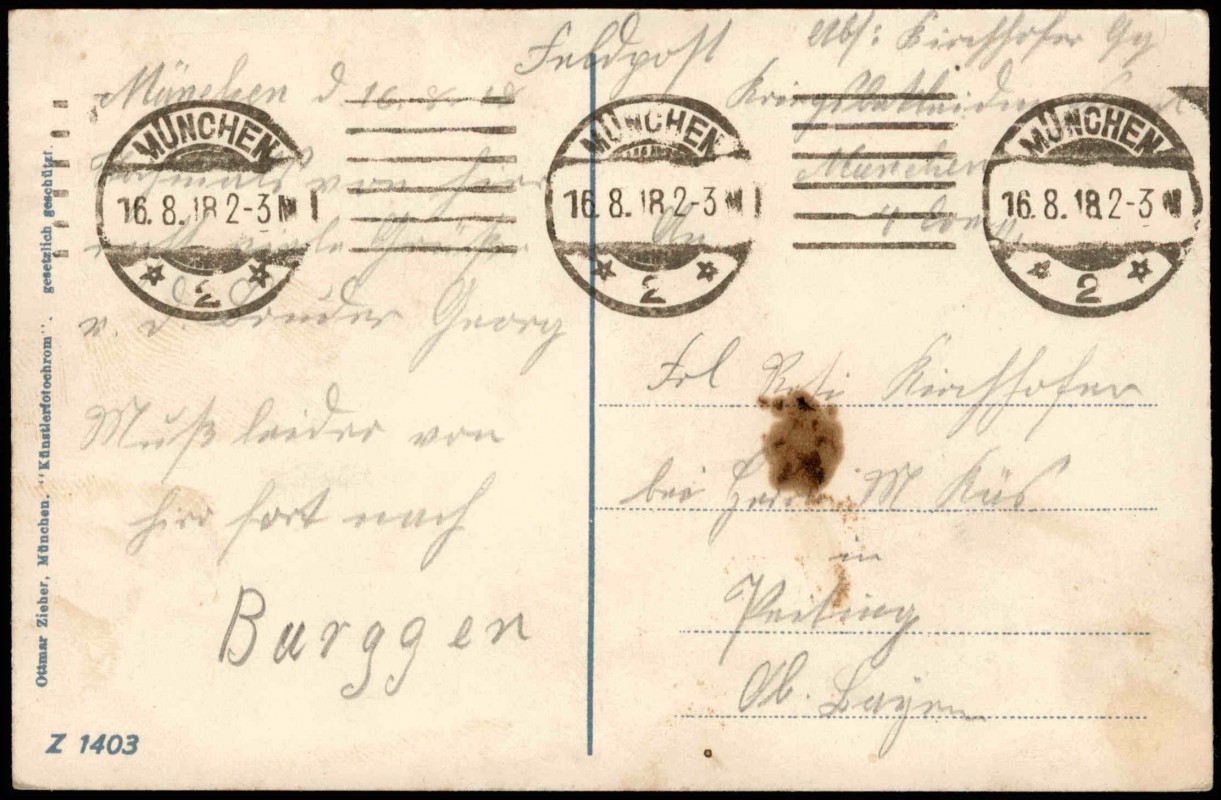 Feldpost
Abs: Kirchhofer Gg
München
4 Comp.
München d 16. 8. 18
Nochmals von hier
recht viele Grüße
v. d. Bruder Georg
Muß leider von
hier fort nach
Burggen
An
Frl Resi Kirchhofer
bei Herrn MKüs
in
Peiting
Ob. Bayern
MÜNCHEN
16. 8. 18. 2-3 N
2
MÜNCHEN
16. 8. 18. 2-3 N
2
MÜNCHEN
16. 8. 18. 2-3 N
2
Ottmar Zieher, München. "Künstlerfotochrom". gesetzlich geschützt.
Z 1403